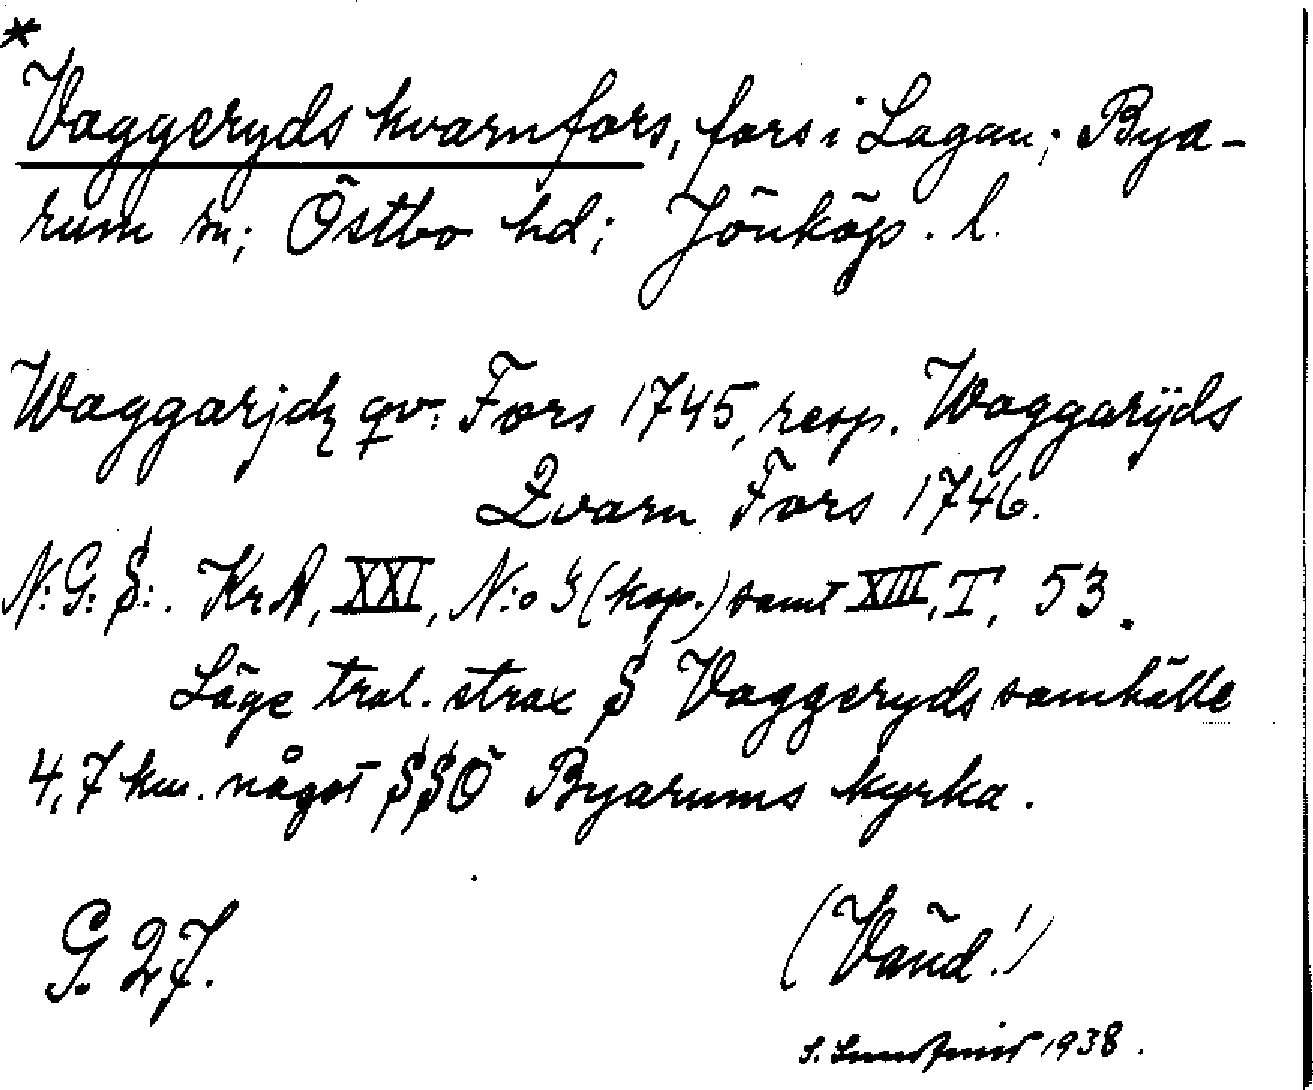 *
Vaggeryds kvarnfors, fors i Lagan; Bya-
rum sn; Östbo hd; Jönköp. l.
Waggarjdz qv: Fors 1745, resp. Waggarÿds
Qvarn Fors 1746.
N: G: S:. KrA, XXI, N:o 3 (kop.) samt XIII, I, 53.
Läge trol. strax S Vaggeryds samhälle
4,7 km. något SSÖ Byarums kyrka.
G. 27.
(Vänd!)
S. 1938.